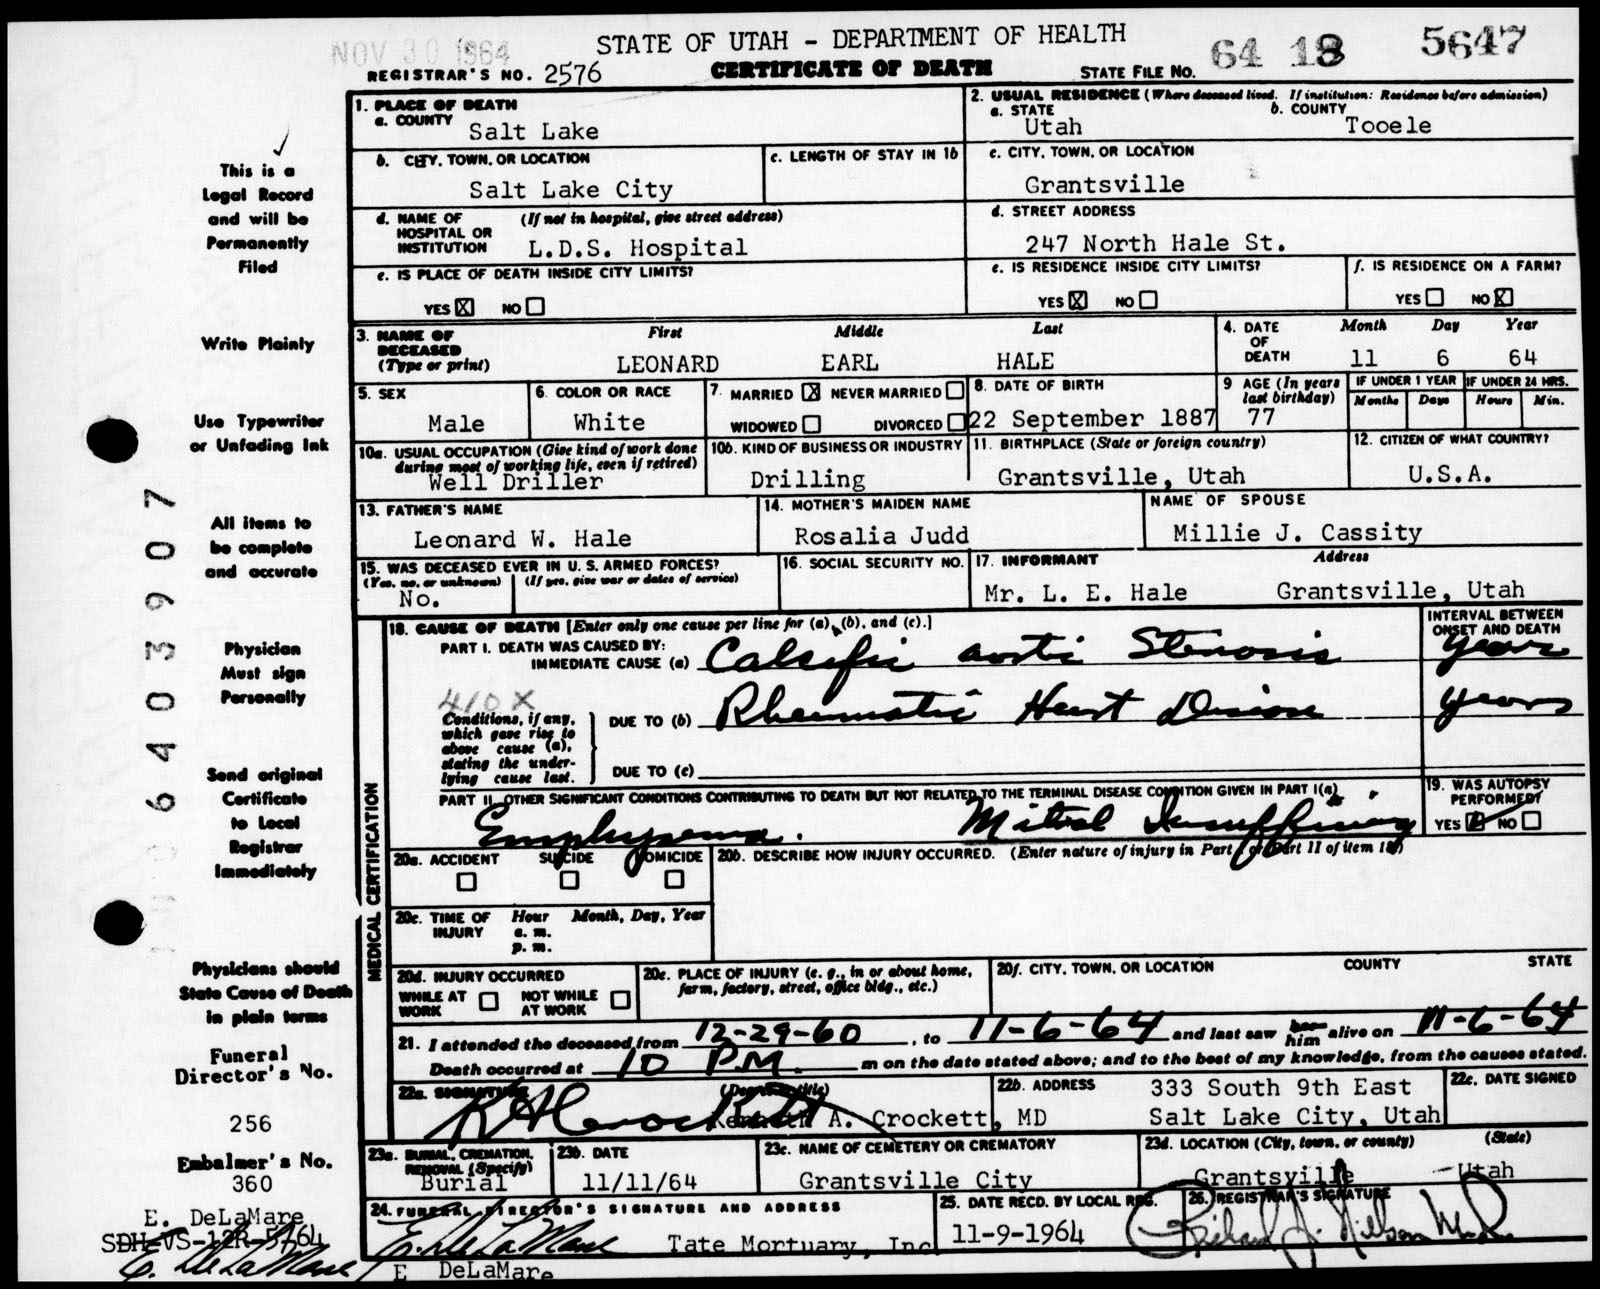 NOV 30 1964
STATE OF UTAH - DEPARTMENT OF HEALTH
64 18 5647
REGISTRAR'S NO. 2576
CERTIFICATE OF DEATH
STATE FILE NO.
1. PLACE OF DEATH
a. COUNTY
Salt Lake
2. USUAL RESIDENCE (Where deceased lived. If institution: Residence before admission)
a. STATE
Utah
b. COUNTY
Tooele
b. CITY, TOWN, OR LOCATION
Salt Lake City
c. LENGTH OF STAY IN 1b
c. CITY, TOWN, OR LOCATION
Grantsville
d. NAME OF HOSPITAL OR INSTITUTION
(If not in hospital, give street address)
L.D.S. Hospital
d. STREET ADDRESS
247 North Hale St.
e. IS PLACE OF DEATH INSIDE CITY LIMITS?
YES X NO
e. IS RESIDENCE INSIDE CITY LIMITS?
YES X NO
f. IS RESIDENCE ON A FARM?
YES NO X
3. NAME OF DECEASED
(Type or print)
First Middle Last
LEONARD EARL HALE
4. DATE OF DEATH
Month Day Year
11 6 64
5. SEX
Male
6. COLOR OR RACE
White
7. MARRIED X NEVER MARRIED
WIDOWED DIVORCED
8. DATE OF BIRTH
22 September 1887
9 AGE (In years last birthday)
77
IF UNDER 1 YEAR
Months Days
IF UNDER 24 HRS.
Hours Min.
10a. USUAL OCCUPATION (Give kind of work done during most of working life, even if retired)
Well Driller
10b. KIND OF BUSINESS OR INDUSTRY
Drilling
11. BIRTHPLACE (State or foreign country)
Grantsville, Utah
12. CITIZEN OF WHAT COUNTRY?
U.S.A.
13. FATHER'S NAME
Leonard W. Hale
14. MOTHER'S MAIDEN NAME
Rosalia Judd
NAME OF SPOUSE
Millie J. Cassity
15. WAS DECEASED EVER IN U.S. ARMED FORCES?
(Yes, no, or unknown) (If yes, give war or dates of service)
No.
16. SOCIAL SECURITY NO.
17. INFORMANT Address
Mr. L. E. Hale Grantsville, Utah
18. CAUSE OF DEATH [Enter only one cause per line for (a), (b), and (c).]
INTERVAL BETWEEN ONSET AND DEATH
PART I. DEATH WAS CAUSED BY:
IMMEDIATE CAUSE (a) Calsific aortic Stenosis years
410X
Conditions, if any, which gave rise to above cause (a), stating the underlying cause last.
DUE TO (b) Rheumatic Heart Disease years
DUE TO (c)
PART II. OTHER SIGNIFICANT CONDITIONS CONTRIBUTING TO DEATH BUT NOT RELATED TO THE TERMINAL DISEASE CONDITION GIVEN IN PART I(a)
Emphysema. Mitral Insufficiency
19. WAS AUTOPSY PERFORMED?
YES NO
MEDICAL CERTIFICATION
20a. ACCIDENT SUICIDE HOMICIDE
20b. DESCRIBE HOW INJURY OCCURRED. (Enter nature of injury in Part I or Part II of item 18)
20c. TIME OF INJURY
Hour Month, Day, Year
a. m.
p. m.
20d. INJURY OCCURRED
WHILE AT WORK NOT WHILE AT WORK
20e. PLACE OF INJURY (e. g., in or about home, farm, factory, street, office bldg., etc.)
20f. CITY, TOWN, OR LOCATION COUNTY STATE
21. I attended the deceased from 12-29-60, to 11-6-64 and last saw her him alive on 11-6-64
Death occurred at 10 P.M. m on the date stated above; and to the best of my knowledge, from the causes stated.
22a. SIGNATURE (Degree or title)
K A Crockett
Kenneth A. Crockett, MD
22b. ADDRESS
333 South 9th East
Salt Lake City, Utah
22c. DATE SIGNED
23a. BURIAL, CREMATION, REMOVAL (Specify)
Burial
23b. DATE
11/11/64
23c. NAME OF CEMETERY OR CREMATORY
Grantsville City
23d. LOCATION (City, town, or county) (State)
Grantsville Utah
24. FUNERAL DIRECTOR'S SIGNATURE AND ADDRESS
E. DeLaMare Tate Mortuary, Inc
E DeLaMare
25. DATE RECD. BY LOCAL REG.
11-9-1964
26. REGISTRAR'S SIGNATURE
This is a
Legal Record
and will be
Permanently
Filed
Write Plainly
Use Typewriter
or Unfading Ink
All items to
be complete
and accurate
Physician
Must sign
Personally
Send original
Certificate
to Local
Registrar
Immediately
Physicians should
State Cause of Death
in plain terms
Funeral
Director's No.
256
Embalmer's No.
360
E. DeLaMare
SDH-VS-12R-5/64
E. DeLaMare
006403907